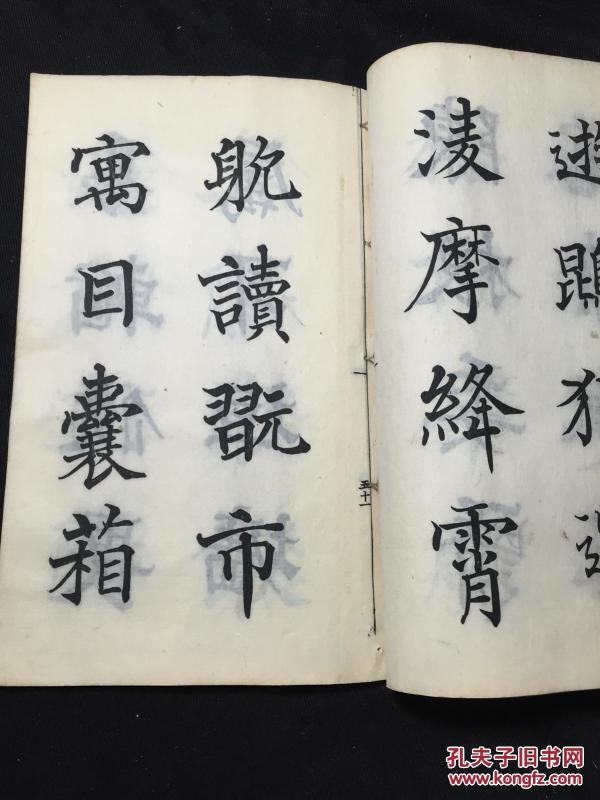 遊
淩摩絳霄
躭讀翫市
寓目囊葙
五十一
孔夫子旧书网
www.kongfz.com